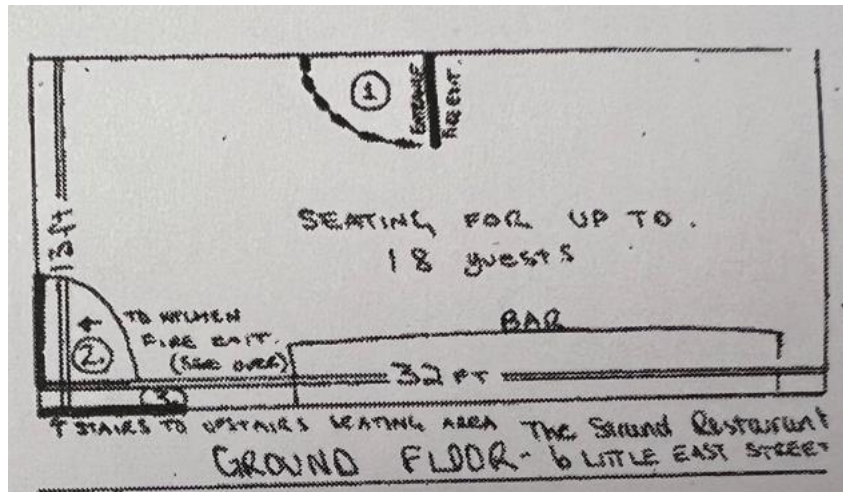 1
ENTRANCE
FIRE EXIT.
13 ft
SEATING FOR UP TO.
18 guests
TO KITCHEN
FIRE EXIT.
(SEE OVER)
2.
BAR
32 FT
3.
↑ STAIRS TO UPSTAIRS SEATING AREA
The Strand Restaurant
GROUND FLOOR - 6 LITTLE EAST STREET